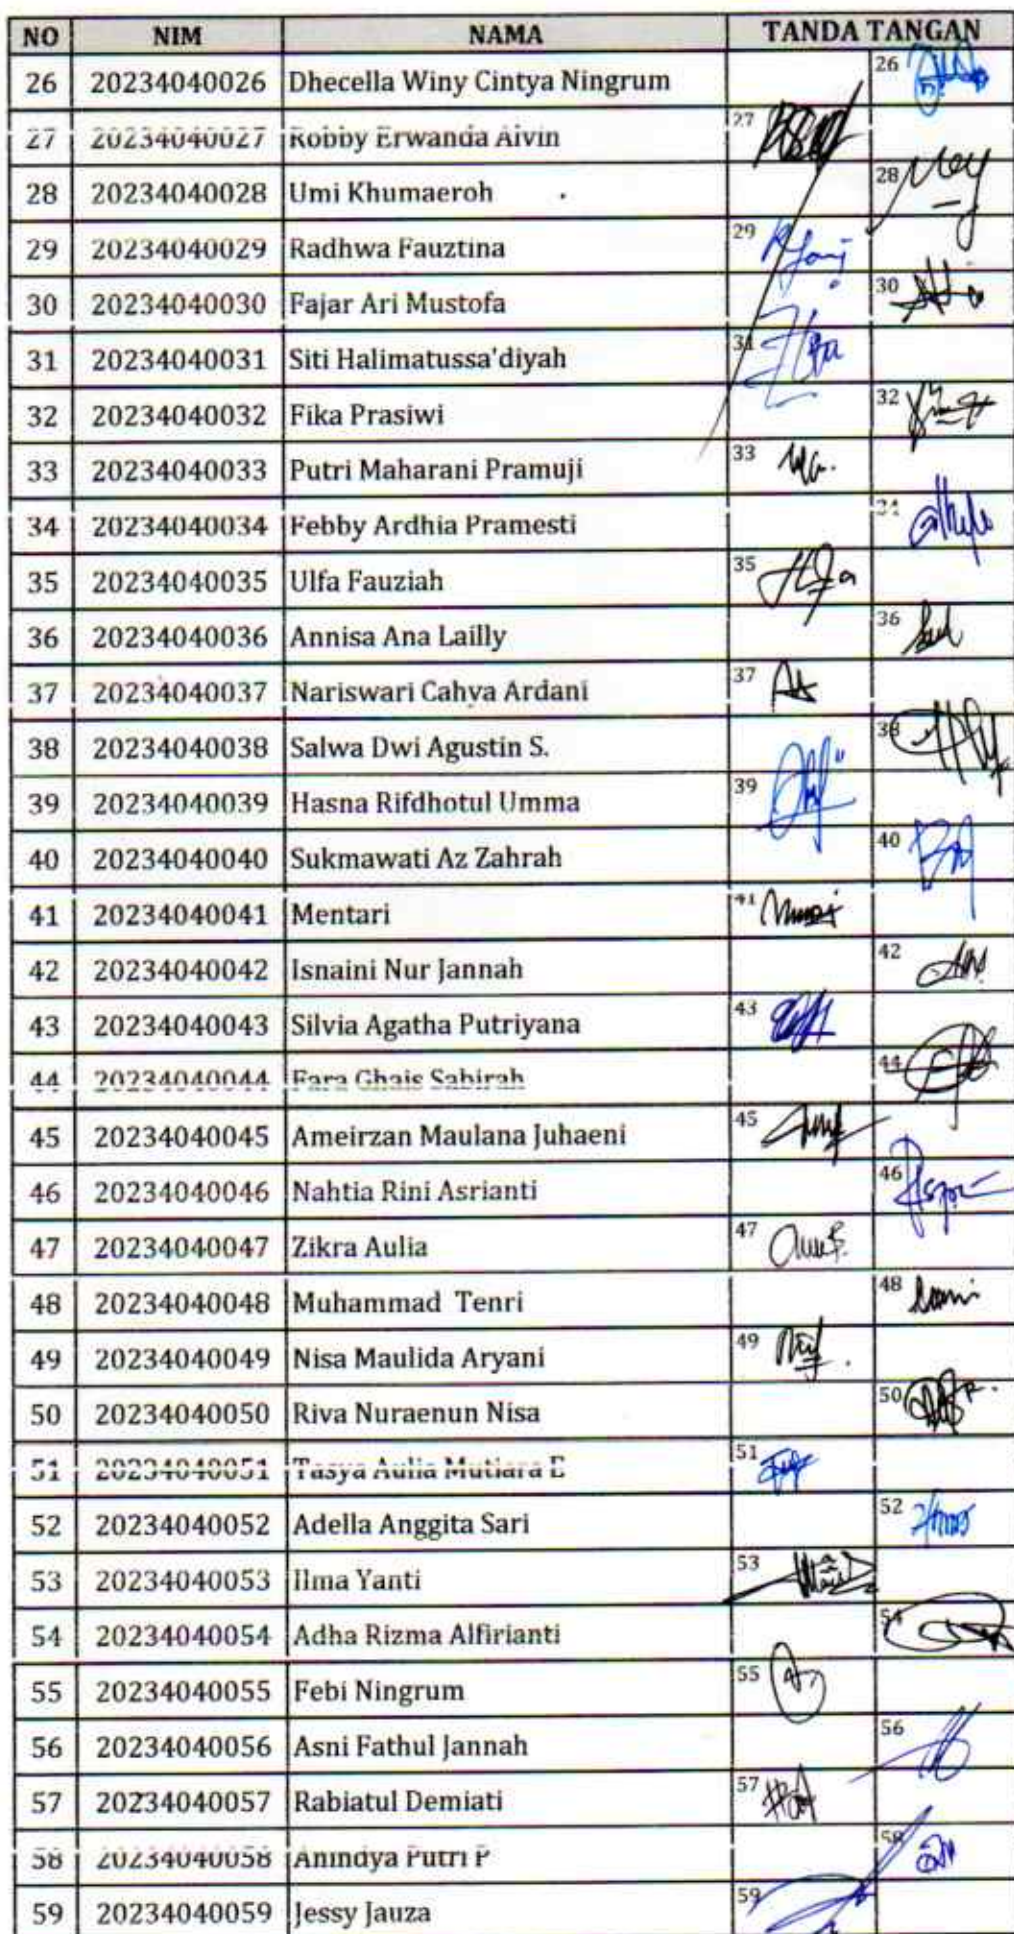 NO NIM NAMA TANDA TANGAN
26 20234040026 Dhecella Winy Cintya Ningrum 26
27 20234040027 Robby Erwanda Alvin 27
28 20234040028 Umi Khumaeroh 28
29 20234040029 Radhwa Fauztina 29
30 20234040030 Fajar Ari Mustofa 30
31 20234040031 Siti Halimatussa'diyah 31
32 20234040032 Fika Prasiwi 32
33 20234040033 Putri Maharani Pramuji 33
34 20234040034 Febby Ardhia Pramesti 34
35 20234040035 Ulfa Fauziah 35
36 20234040036 Annisa Ana Lailly 36
37 20234040037 Nariswari Cahya Ardani 37
38 20234040038 Salwa Dwi Agustin S. 38
39 20234040039 Hasna Rifdhotul Umma 39
40 20234040040 Sukmawati Az Zahrah 40
41 20234040041 Mentari 41
42 20234040042 Isnaini Nur Jannah 42
43 20234040043 Silvia Agatha Putriyana 43
44 20234040044 Fara Ghais Sabirah 44
45 20234040045 Ameirzan Maulana Juhaeni 45
46 20234040046 Nahtia Rini Asrianti 46
47 20234040047 Zikra Aulia 47
48 20234040048 Muhammad Tenri 48
49 20234040049 Nisa Maulida Aryani 49
50 20234040050 Riva Nuraenun Nisa 50
51 20234040051 Tasya Aulia Mutiara E 51
52 20234040052 Adella Anggita Sari 52
53 20234040053 Ilma Yanti 53
54 20234040054 Adha Rizma Alfirianti 54
55 20234040055 Febi Ningrum 55
56 20234040056 Asni Fathul Jannah 56
57 20234040057 Rabiatul Demiati 57
58 20234040058 Anindya Putri P 58
59 20234040059 Jessy Jauza 59